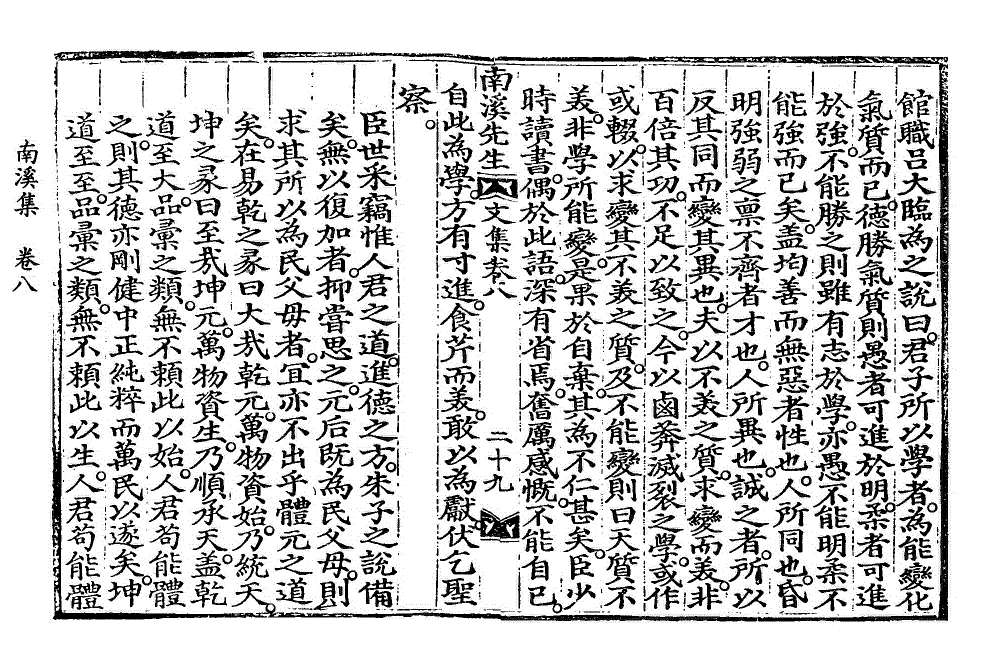 館職呂大臨為之說曰。君子所以學者。為能變化
氣質而已。德勝氣質則愚者可進於明。柔者可進
於強。不能勝之則雖有志於學。亦愚不能明柔不
能強而已矣。盖均善而無惡者性也。人所同也。昏
明強弱之禀不齊者才也。人所異也。誠之者。所以
反其同而變其異也。夫以不美之質。求變而美。非
百倍其功。不足以致之。今以鹵莽滅裂之學。或作
或輟。以求變其不美之質。及不能變則曰天質不
美。非學所能變。是果於自棄。其為不仁甚矣。臣少
時讀書。偶於此語。深有省焉。奮厲感慨。不能自已。
南溪先生文集卷八 二十九
自此為學。方有寸進。食芹而美。敢以為獻。伏乞聖
察。
臣世采竊惟人君之道。進德之方。朱子之說備
矣。無以復加者。抑嘗思之。元后既為民父母。則
求其所以為民父母者。宜亦不出乎體元之道
矣。在易乾之彖曰大哉乾元。萬物資始。乃統天。
坤之彖曰至哉坤元。萬物資生。乃順承天。盖乾
道至大。品彙之類。無不賴此以始。人君苟能體
之。則其德亦剛健中正純粹而萬民以遂矣。坤
道至至。品彙之類。無不賴此以生。人君苟能體
南溪集 卷八